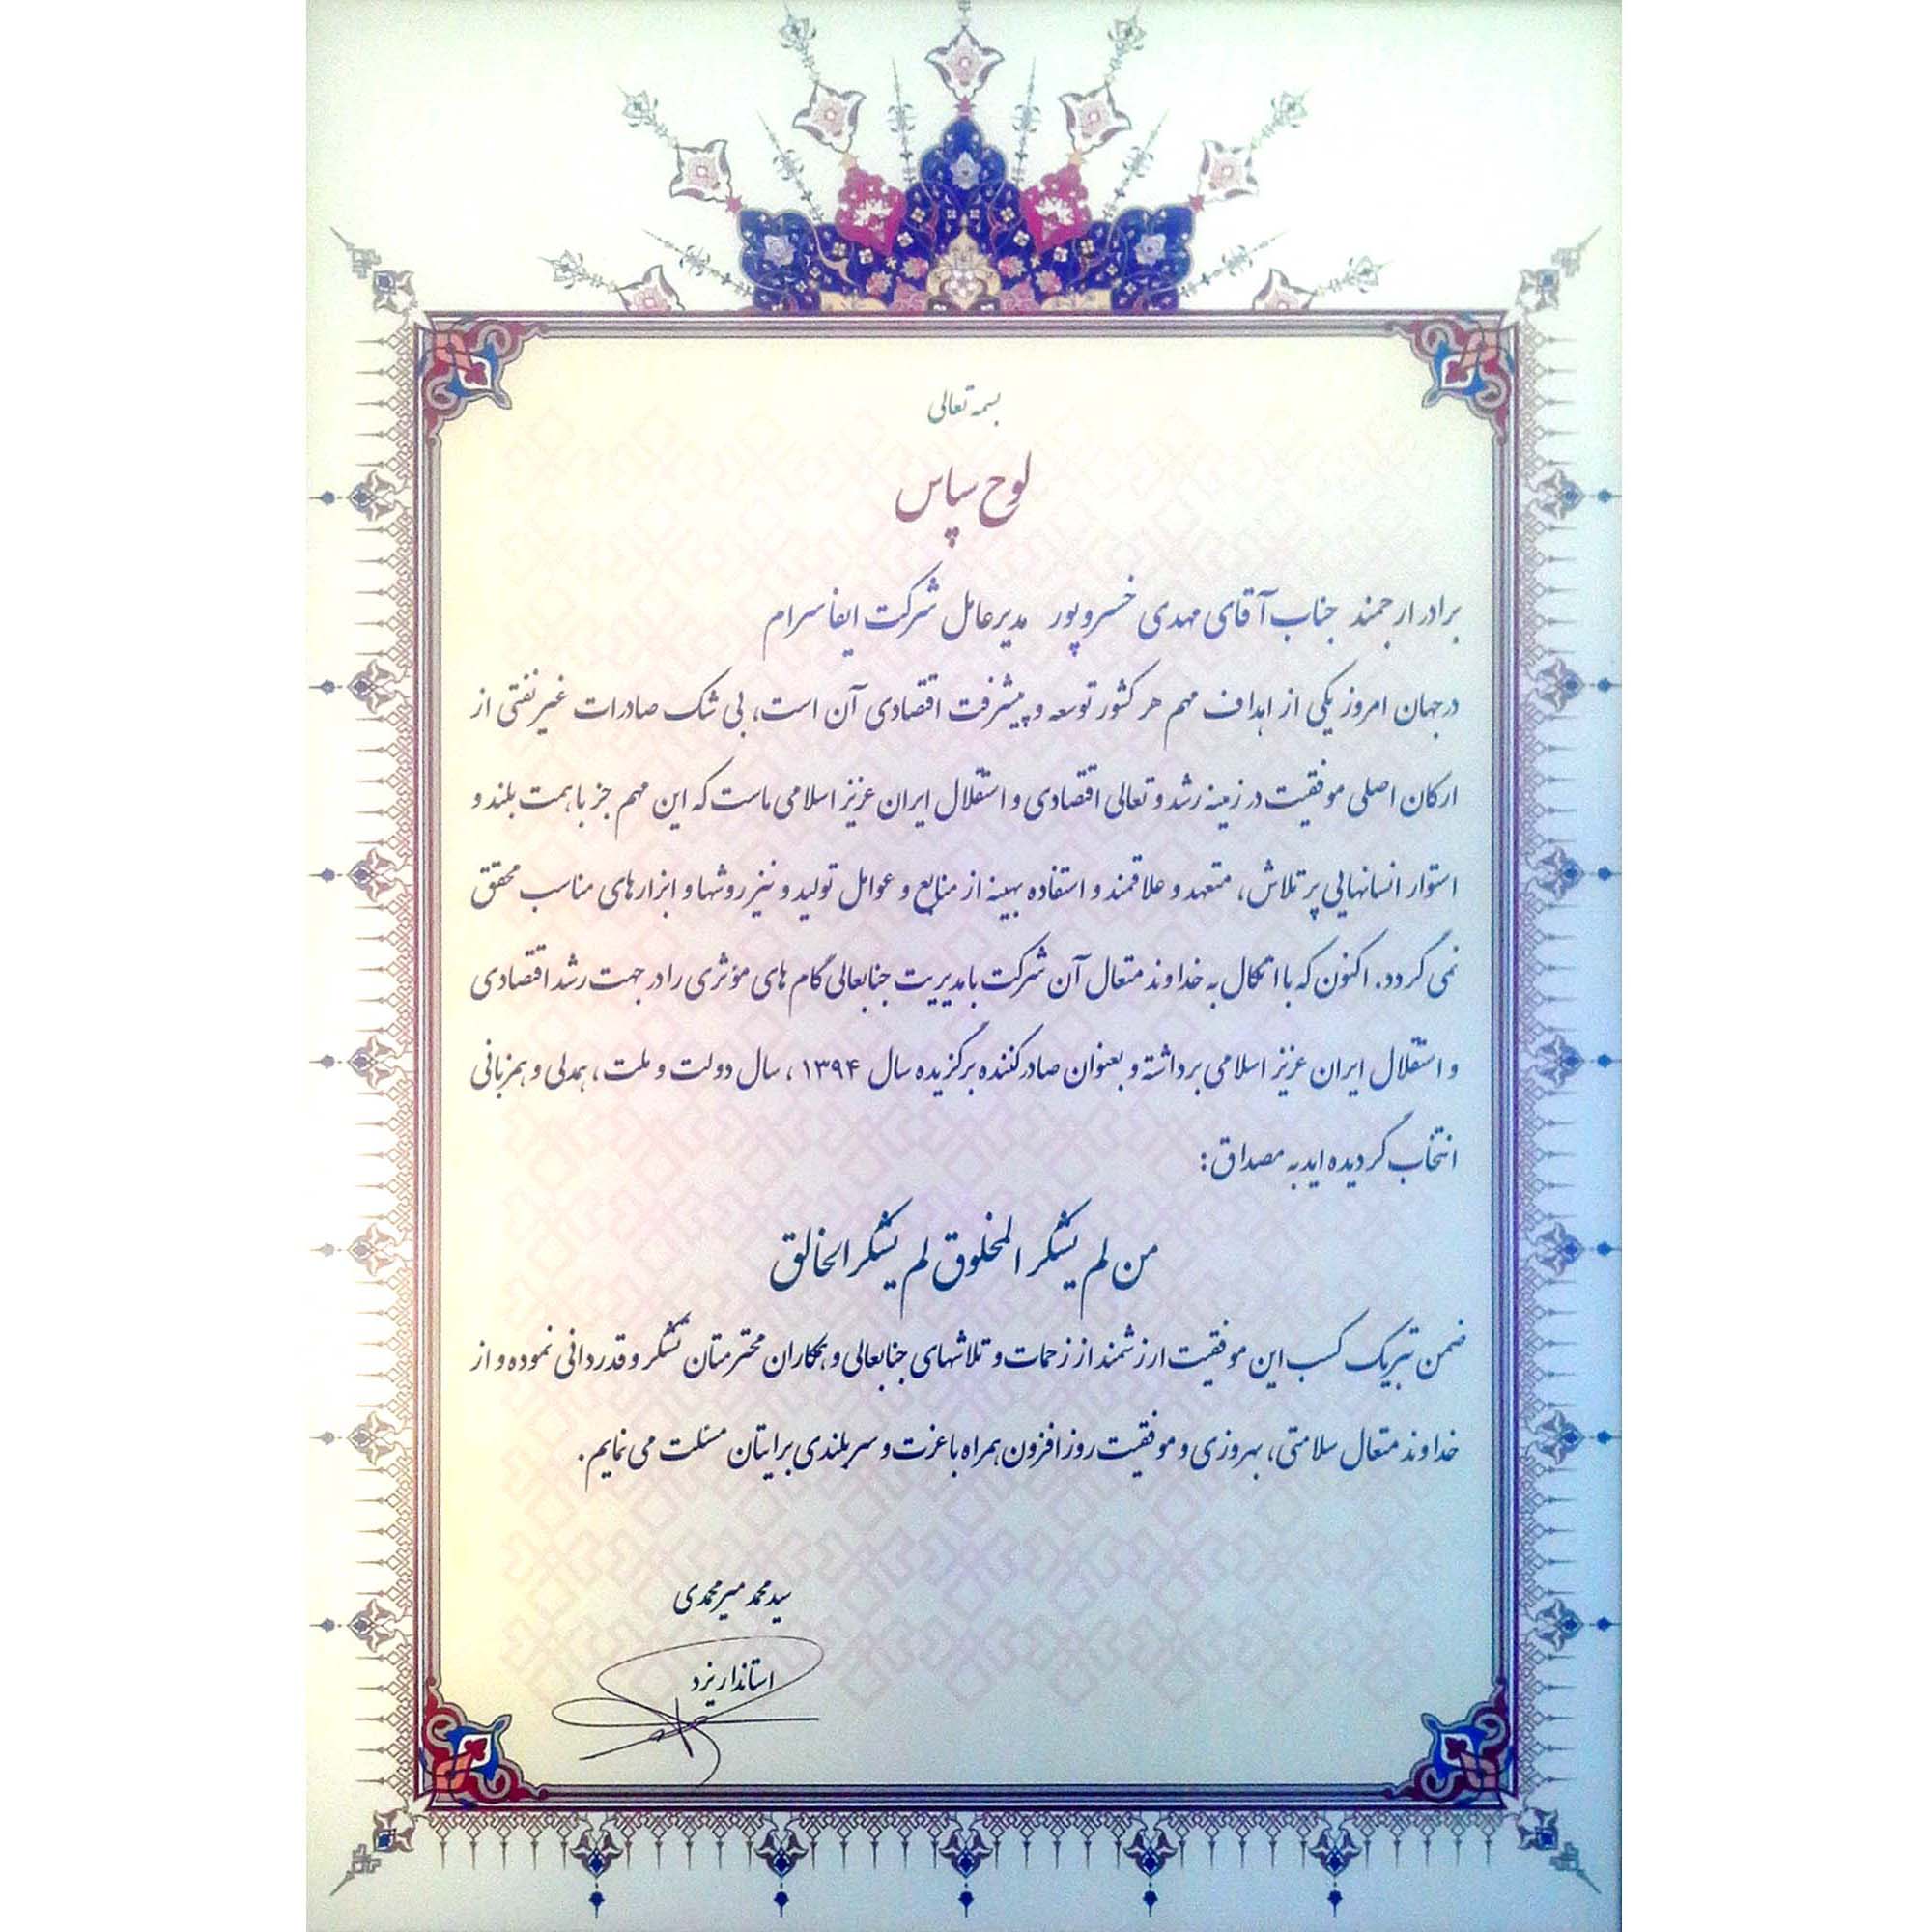 بسمه تعالی
لوح سپاس
برادر ارجمند جناب آقای مهدی خسروپور مدیرعامل شرکت ایفا سرام
درجهان امروز یکی از اهداف مهم هر کشور توسعه و پیشرفت اقتصادی آن است، بی شک صادرات غیرنفتی از
ارکان اصلی موفقیت در زمینه رشد و تعالی اقتصادی و استقلال ایران عزیز اسلامی ماست که این مهم جز با همت بلند و
استوار انسانهایی پر تلاش، متعهد و علاقمند و استفاده بهینه از منابع و عوامل تولید و نیز روشها و ابزارهای مناسب محقق
نمی گردد. اکنون که با اتکال به خداوند متعال آن شرکت با مدیریت جنابعالی گام های مؤثری را در جهت رشد اقتصادی
و استقلال ایران عزیز اسلامی برداشته و بعنوان صادرکننده برگزیده سال ۱۳۹۴، سال دولت و ملت، همدلی و همزبانی
انتخاب گردیده اید به مصداق:
من لم یشکر المخلوق لم یشکر الخالق
ضمن تبریک کسب این موفقیت ارزشمند از زحمات و تلاشهای جنابعالی و همکاران محترمتان تشکر و قدردانی نموده و از
خداوند متعال سلامتی، بهروزی و موفقیت روز افزون همراه با عزت و سربلندی برایتان مسئلت می نمایم.
سید محمد میرمحمدی
استاندار یزد